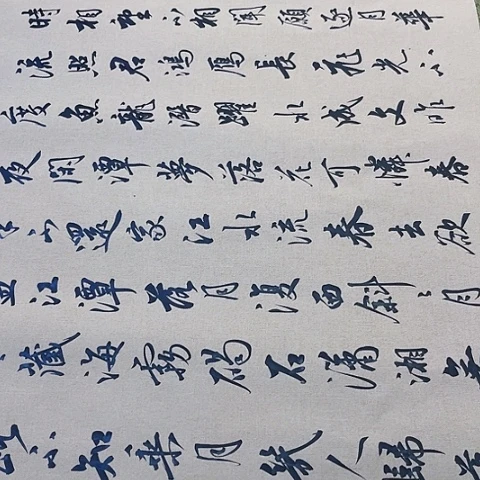 時相望不相聞願逐月華
流照君鴻雁長飛光不
度魚龍潛躍水成文昨
夜閑潭夢落花可憐春
不還家江水流春去欲
江潭落月復西斜〻月
藏海霧碣石瀟湘無
不知乘月幾人歸